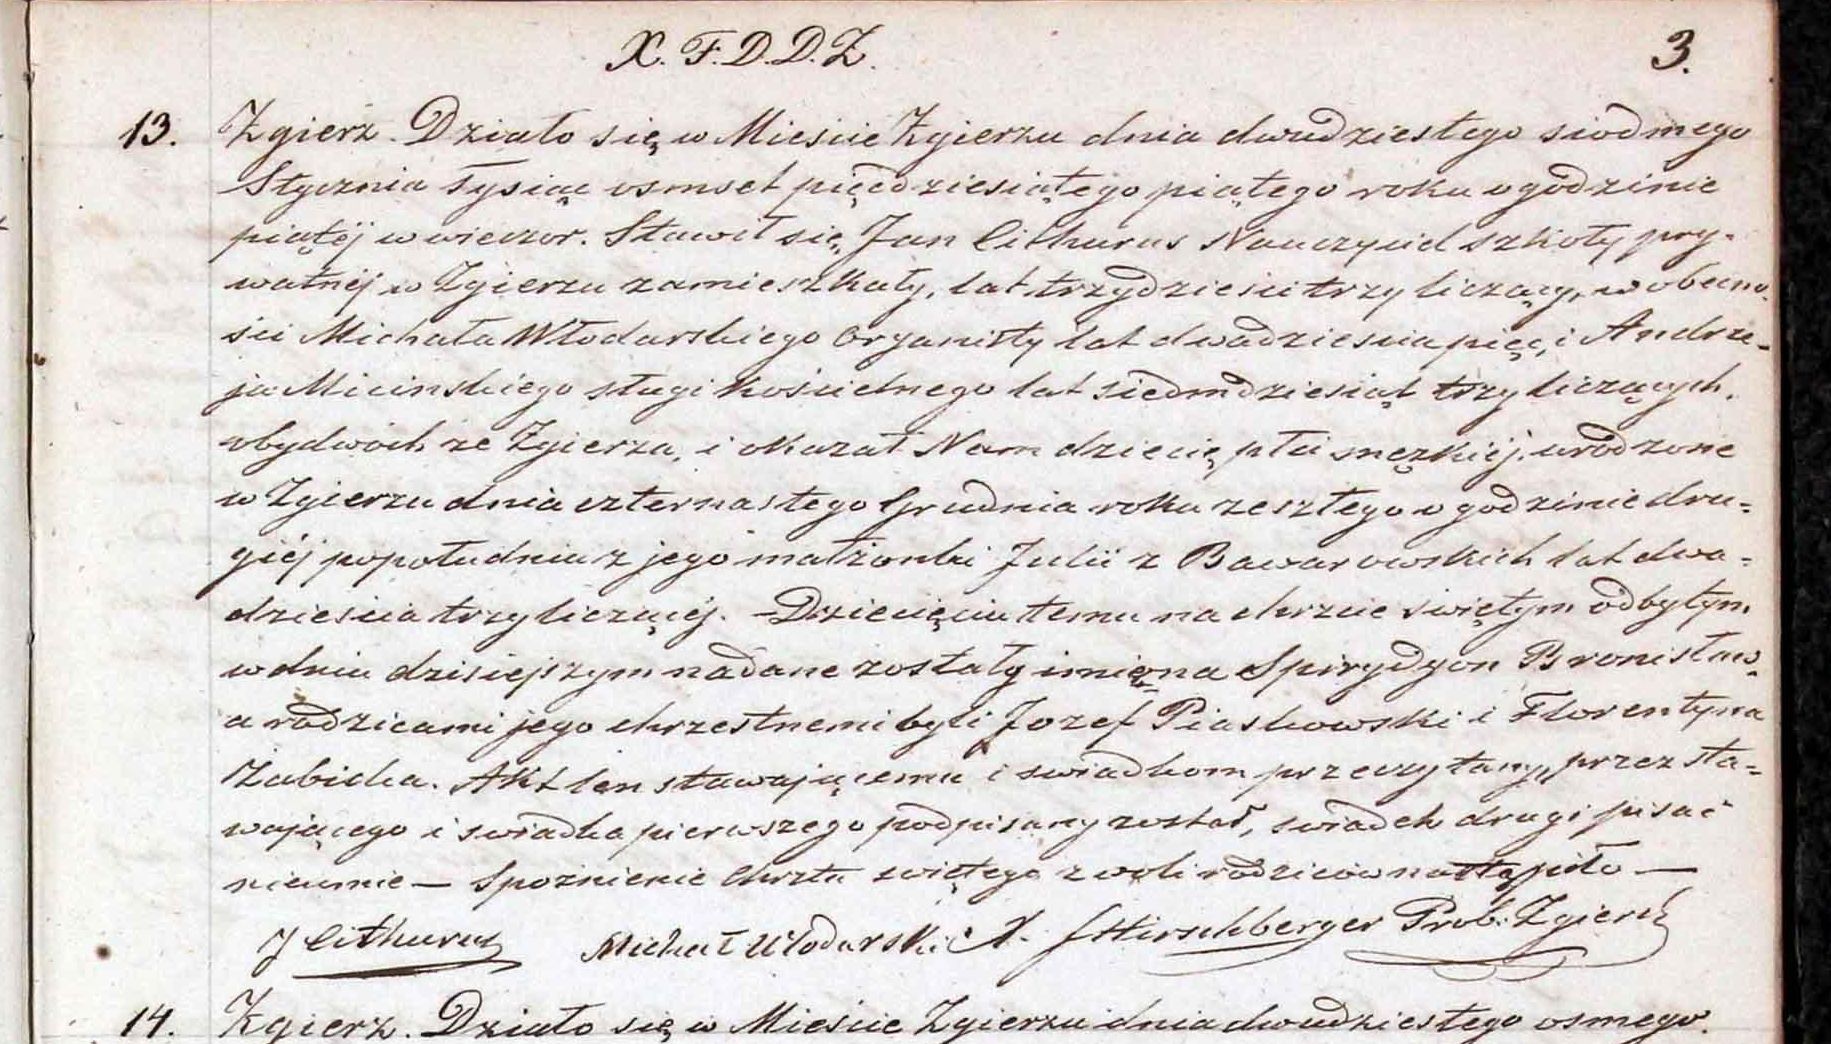 X. F. D. D. Z.
3.
13. Zgierz. Działo się w Mieście Zgierzu dnia dwudziestego siodmego
Stycznia Tysiąc osmset pięcdziesiątego piątego roku o godzinie
piątéj w wieczor. Stawił się Jan Cithurus Nauczyciel szkoły pry-
watnéj w Zgierzu zamieszkały, lat trzydzieści trzy liczący, w obecno-
ści Michała Włodarskiego Organisty lat dwadzieścia pięc, i Andrze-
ja Micinskiego sługi kościelnego lat siedmdziesiąt trzy liczących,
obydwóch ze Zgierza, i okazał Nam dziecię płci męzkiéj, urodzone
w Zgierzu dnia czternastego Grudnia roku zeszłego o godzinie dru-
giéj popołudniu z jego małżonki Julii z Bawarowskich lat dwa-
dzieścia trzy liczącéj. Dziecięciu temu na chrzcie świętym odbytym
w dniu dzisiejszym nadane zostały imiona Spirydyon Bronisław,
a rodzicami jego chrzestnemi byli Jozef Piaskowski i Florentyna
Zabicka. Akt ten stawającemu i swiadkom przeczytany, przez sta-
wającego i swiadka pierwszego podpisany został, swiadek drugi pisać
nieumie — Spoznienie Chrztu swiętego z woli rodziców nastąpiło —
J Cithurus Michał Włodarski X. J Hirschberger Prob. Zgierz
14. Zgierz. Działo się w Mieście Zgierzu dnia dwudziestego osmego